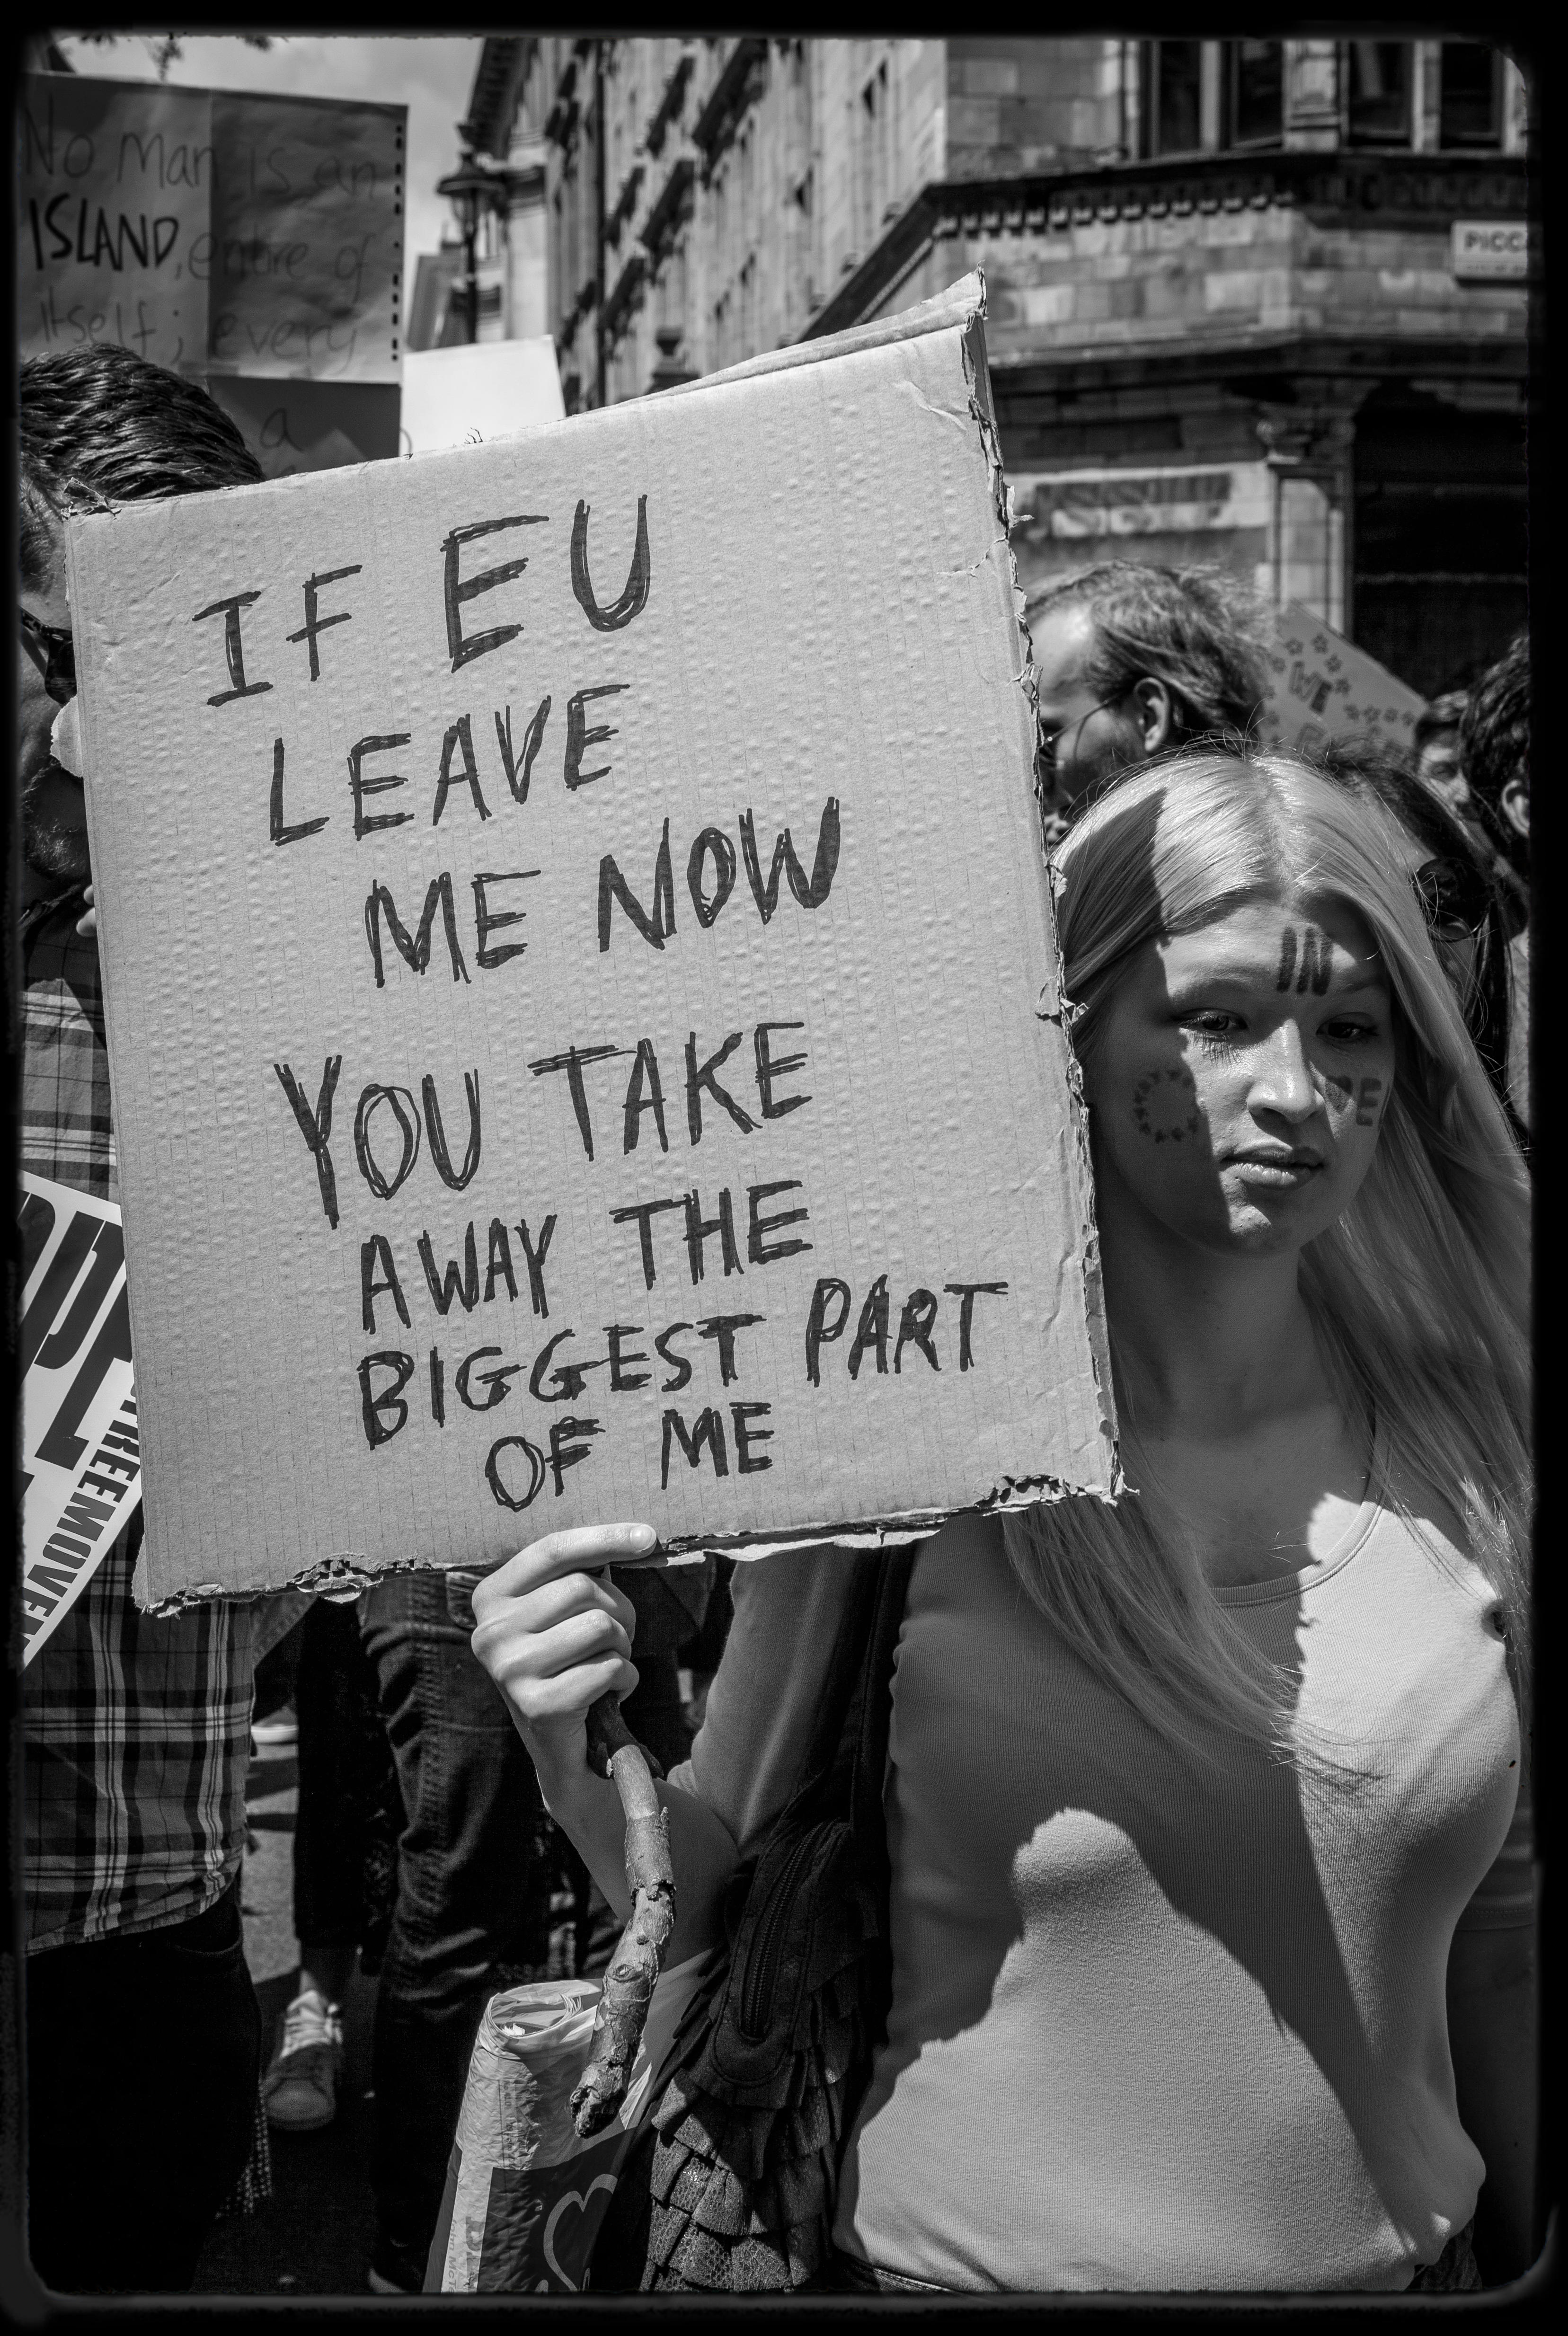 No man is an
ISLAND, entire of
itself; every
a
PICCA
IF EU
LEAVE
ME NOW
YOU TAKE
AWAY THE
BIGGEST PART
OF ME
WE
IN